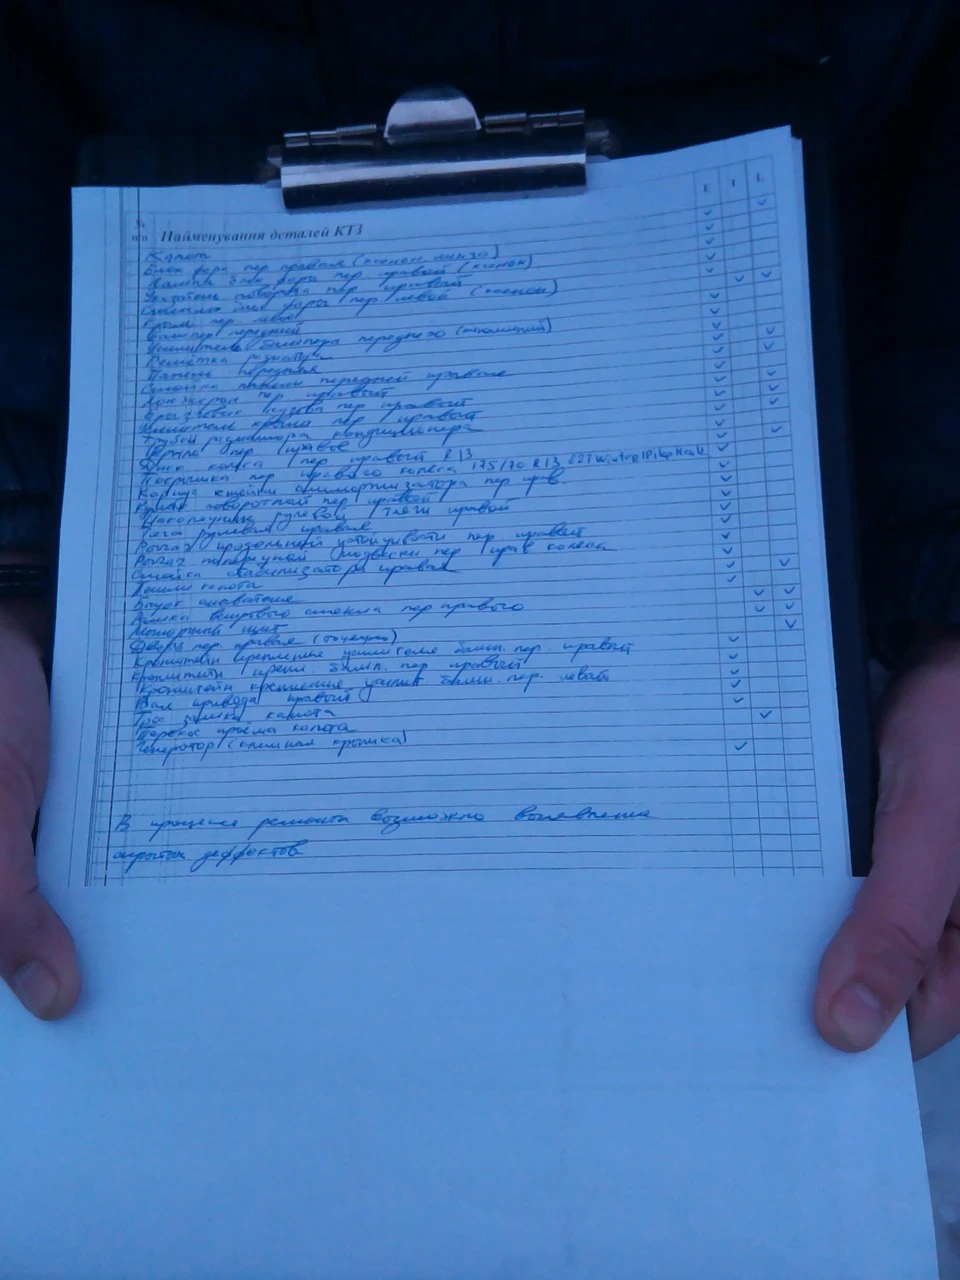 E I L
№
п/п Найменування деталей КТЗ
Капот
Блок фара пер. правая (ксенон линза)
Лампы блок фары пер. правой (ксенон)
Указатель поворота пер. правый
блок фары пер. левой (ксенон)
Крыло пер. левое
Бампер передний
Усилитель бампера переднего
Решётка радиатора
Панель передняя
Стойка панели передней правая
Лонжерон пер. правый
Брызговик кузова пер. правый
Усилитель крыла пер. правый
Трубки радиатора кондиционера
Крыло пер. правое
Диск колеса пер. правый R13
Покрышка пер. правого колеса 175/70 R13
амортизатора пер. прав.
Кулак поворотный пер. правый
Наконечник рулевой тяги правой
Тяга рулевая правая
Рычаг продольной устойчивости пер. правый
Рычаг поперечной подвески пер. прав. колеса
Стойка стабилизатора правая
Петли капота
Бачок омывателя
Рамка ветрового стекла пер. правого
Моторный щит
Дверь пер. правая
Кронштейн крепления усилителя бамп. пер. правый
Кронштейн крепл. бамп. пер. правый
Кронштейн крепления усилит. бамп. пер. левый
Вал привода правый
Трос замка капота
Перекос проёма капота
Генератор (крышка)
В процессе ремонта возможно выявление
скрытых деффектов